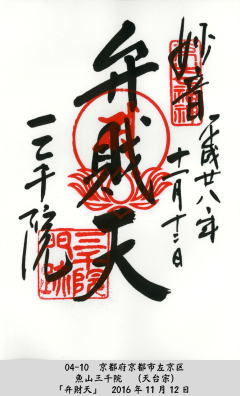 妙音
平成廿八年
十一月十二日
弁財天
三千院
三千院
門跡
04-10 京都府京都市左京区
魚山三千院 (天台宗)
「弁財天」 2016年11月12日